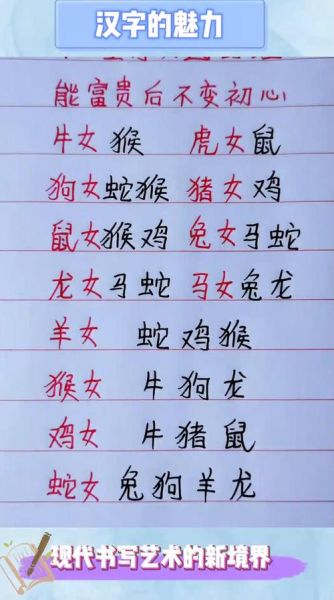 汉字的魅力
能富贵后不变初心
牛女 猴 虎女 鼠
狗女 蛇猴 猪女 鸡
鼠女 猴鸡 兔女 马蛇
龙女 马蛇 马女 兔龙
羊女 蛇鸡猴
猴女 牛狗龙
鸡女 牛猪鼠
蛇女 兔狗羊龙
现代书写艺术的新境界